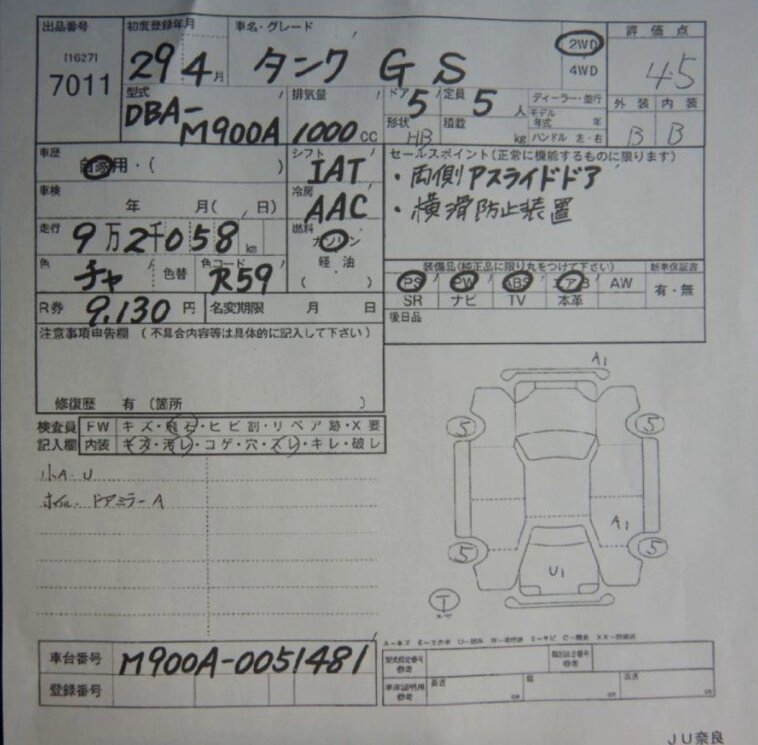 出品番号 初度登録年月 車名・グレード 評価点
[1627]
7011 29 4月 タンク GS 2WD 4.5
4WD
型式 排気量 ドア 定員 ディーラー・並行 外装 内装
DBA-M900A 1000cc 5 5人 モデル年式 年 B B
形状 積載
HB kg ハンドル 左・右
車歴 シフト セールスポイント(正常に機能するものに限ります)
自家用・( ) IAT ・両側Aスライドドア
車検 冷房 ・横滑防止装置
年 月( , 日) AAC
走行 9万2千058km 燃料
ガソリン
軽・油
( )
色 チャ 色替 色コード R59
装備品(純正品に限り丸をつけて下さい) 新車保証書
PS PW ABS エアB AW 有・無
SR ナビ TV 本革
R券 9,130円 名変期限 月 日
後日品
注意事項申告欄(不具合内容等は具体的に記入して下さい)
修復歴 有〔箇所 〕
A1
検査員 FW キズ・飛石・ヒビ割・リペア跡・X要
記入欄 内装 キズ・汚レ・コゲ・穴・スレ・キレ・破レ
小A・U
ホイル・ドアミラーA
5 5
A1
5 5
U1
T
車台番号 M900A-0051481
登録番号
型式指定番号 類別区分番号
車庫証明用 長さ cm 幅 cm 高さ cm
JU奈良